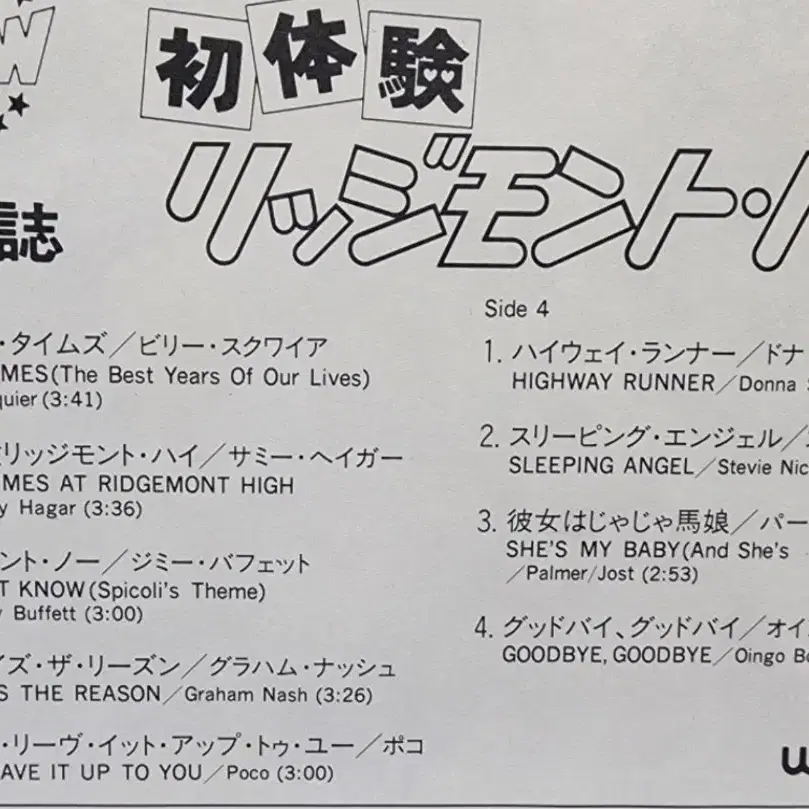 初体験
リッジモント・ハ
誌
・タイムズ／ビリー・スクワイア
MES(The Best Years Of Our Lives)
quier (3:41)
リッジモント・ハイ／サミー・ヘイガー
MES AT RIDGEMONT HIGH
y Hagar (3:36)
ント・ノー／ジミー・バフェット
T KNOW(Spicoli's Theme)
y Buffett (3:00)
イズ・ザ・リーズン／グラハム・ナッシュ
S THE REASON／Graham Nash (3:26)
・リーヴ・イット・アップ・トゥ・ユー／ポコ
AVE IT UP TO YOU／Poco (3:00)
Side 4
1. ハイウェイ・ランナー／ドナ
HIGHWAY RUNNER／Donna
2. スリーピング・エンジェル／
SLEEPING ANGEL／Stevie Nic
3. 彼女はじゃじゃ馬娘／パー
SHE'S MY BABY(And She's
／Palmer/Jost (2:53)
4. グッドバイ、グッドバイ／オイ
GOODBYE, GOODBYE／Oingo Bo